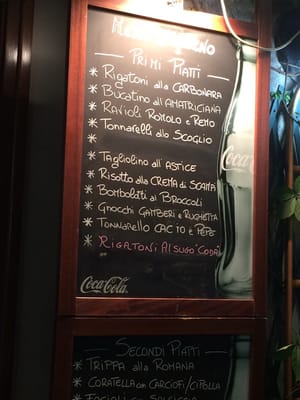 PRIMI PIATTI
* Rigatoni alla CARBONARA
* Bucatino all'AMATRICIANA
* Ravioli Romolo e Remo
* Tonnarelli allo Scoglio
*
* Tagliolino all'ASTICE
* Risotto alla CREMA di SCAMPI
* Bombolotti ai Broccoli
* Gnocchi GAMBERI e RUGHETTA
* Tonnarello CACIO e PEPE
* RIGATONI AL SUGO "CODA"
Coca-Cola
Coca-Cola
SECONDI PIATTI
* TRIPPA alla ROMANA
* CORATELLA con CARCIOFI/CIPOLLA
* FAGIOLI con SALSICCIA